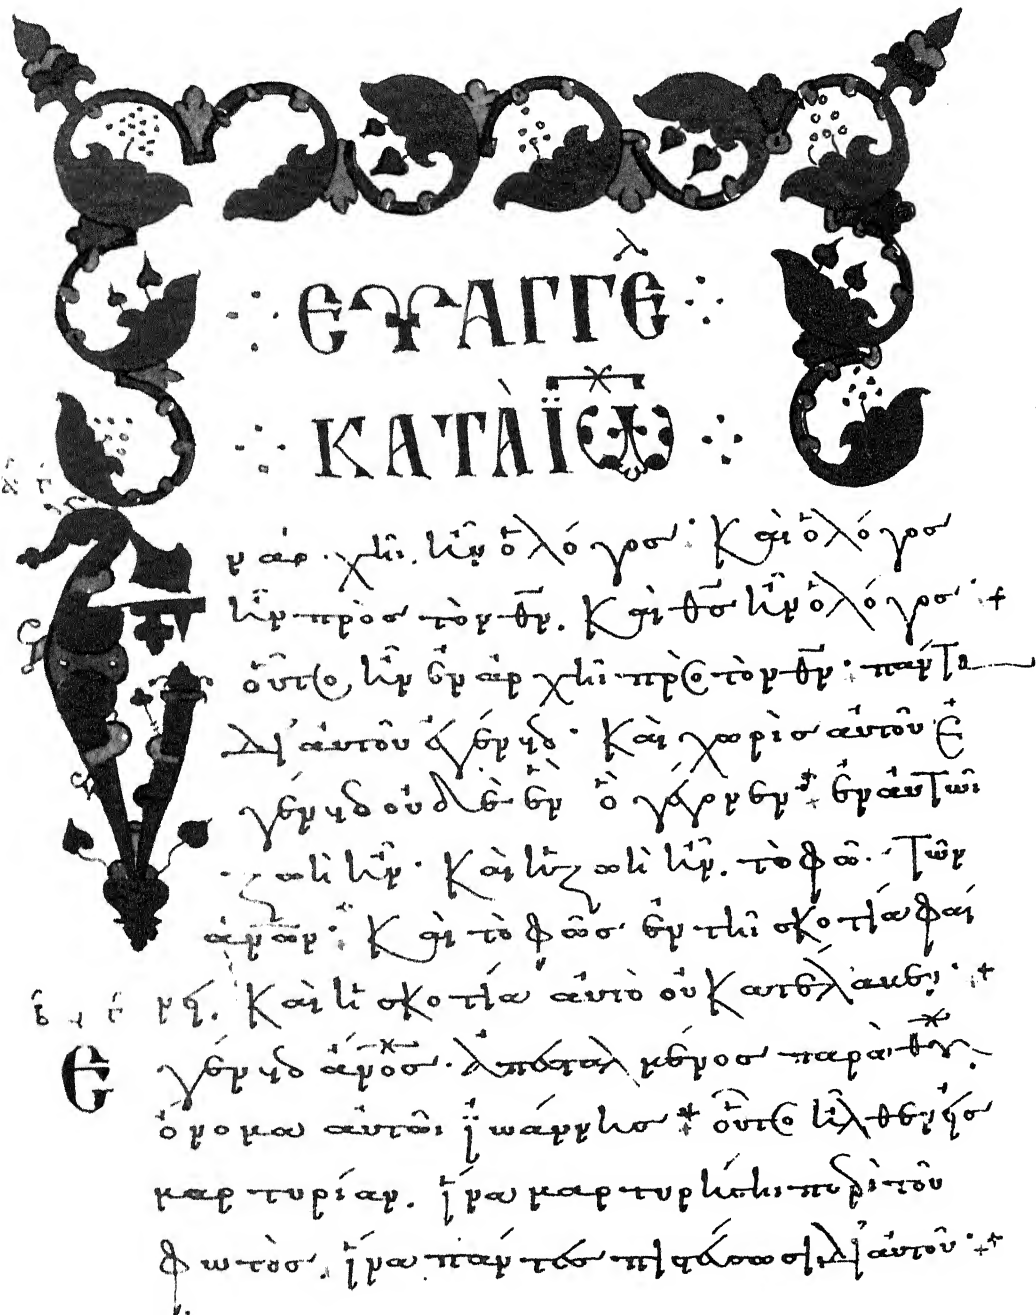 ΕΥΑΓΓΕλ
ΚΑΤᾺ ΪΩ
Ἐν ἀρχῆι ἦν ὁ λόγος· Καὶ ὁ λόγος
ἦν πρὸς τὸν θν. Καὶ θς ἦν ὁ λόγος·+
οὗτος ἦν ἐν ἀρχῆι πρὸς τὸν θν· πάντα
δι' αὐτοῦ ἐγένετο· Καὶ χωρὶς αὐτοῦ ἐ
γένετο οὐδὲ ἓν ὃ γέγονεν·+ ἐν αὐτῶι
ζωὴ ἦν· Καὶ ἡ ζωὴ ἦν τὸ φῶς τῶν
ἀνων· Καὶ τὸ φῶς ἐν τῆι σκοτία φαί
νει. Καὶ ἡ σκοτία αὐτὸ οὐ κατέλαβεν·+
Ἐγένετο ἄνος· ἀπεσταλμένος παρὰ θυ.
ὄνομα αὐτῶι ἰωάννης + οὗτος ἦλθεν εἰς
μαρτυρίαν. ἵνα μαρτυρήσηι περὶ τοῦ
φωτὸς. ἵνα πάντες πιστεύσωσι δι' αὐτοῦ·+